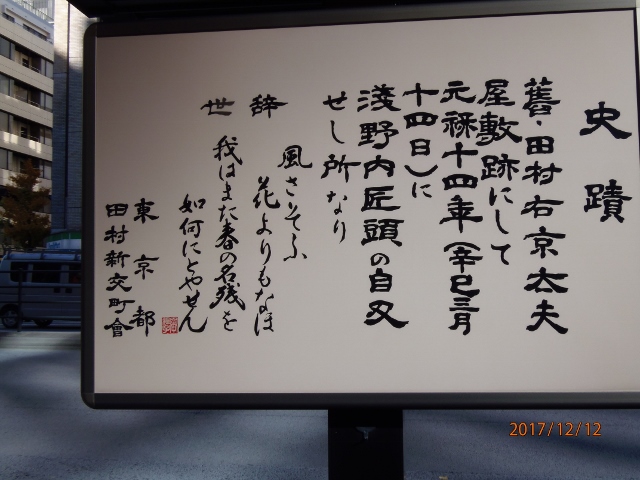 史蹟
舊・田村右京太夫
屋敷跡にして
元禄十四年（辛巳三月
十四日）に
淺野内匠頭の自刃
せし所なり
辞世
風さそふ
花よりもなほ
我はまた春の名残を
如何にとやせん
東京都
田村新交町會
2017/12/12